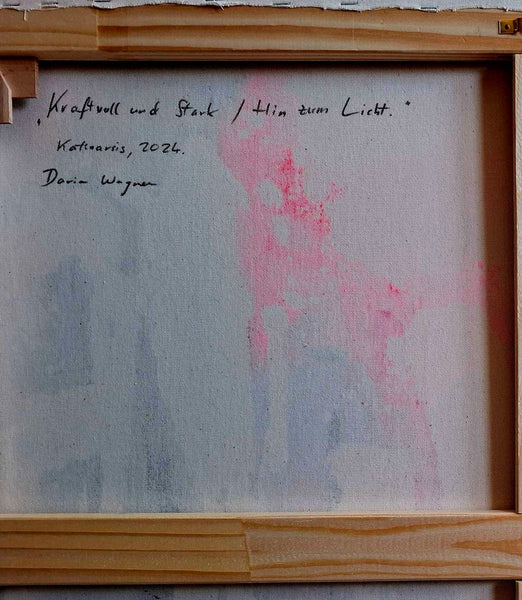 „Kraftvoll und Stark / Hin zum Licht."
Katharsis, 2024.
Daria Wagner